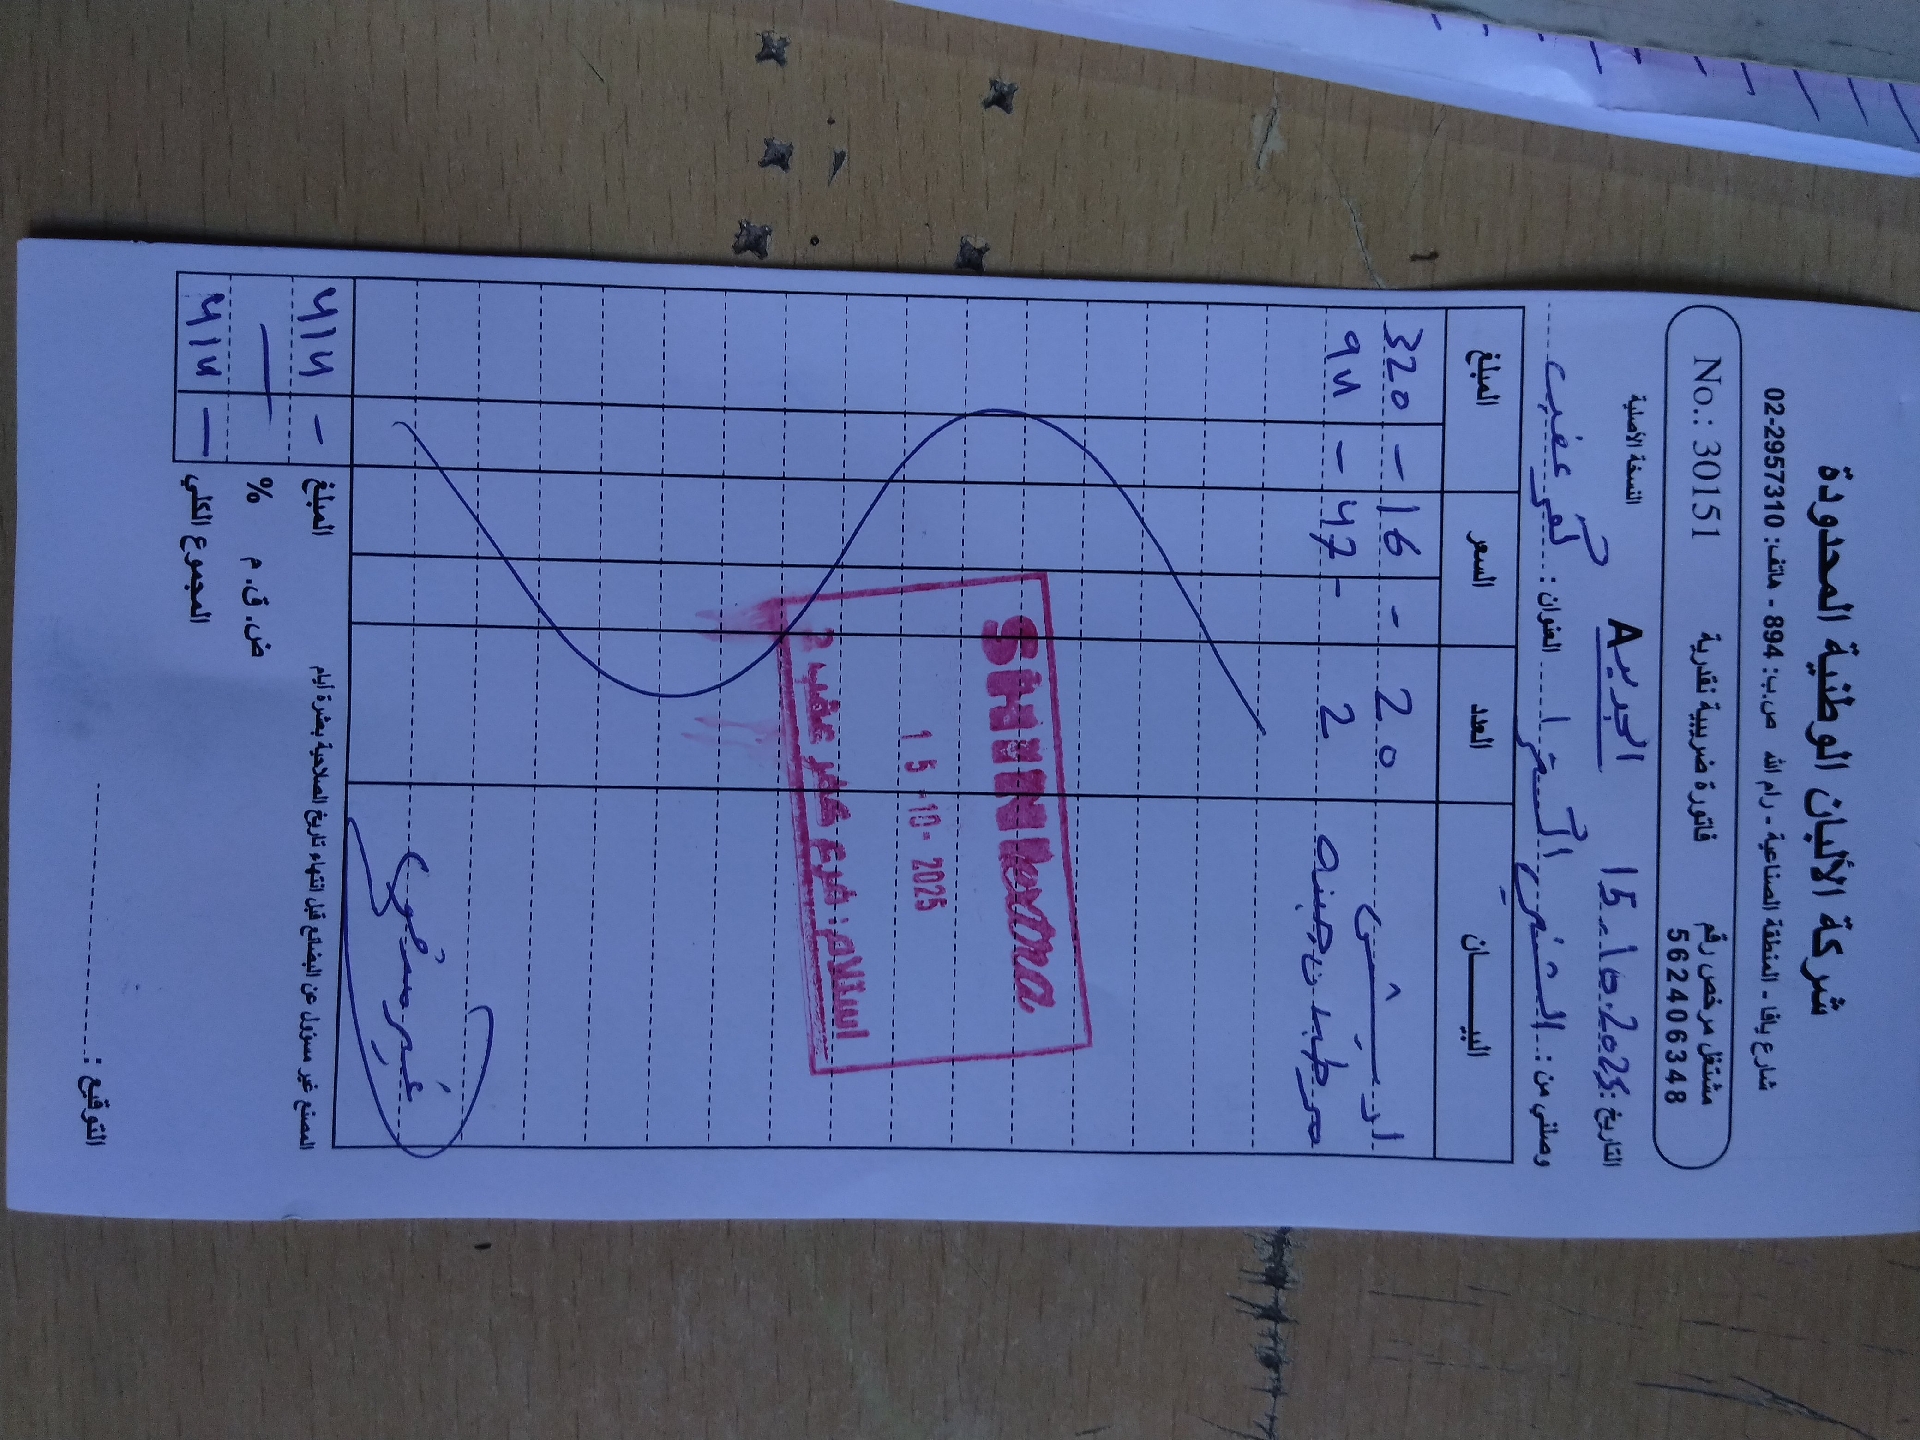 شركة الألبان الوطنية المحدودة
شارع يافا - المنطقة الصناعية - رام الله ص.ب: 894 - هاتف: 02-2957310
مشتغل مرخص رقم
562406348
فاتورة ضريبية نقدية
No.: 30151
التاريخ: 15.10.2025
A
النسخة الأصلية
وصلني من: العنوان: كفر عقب
البيــــان العدد السعر المبلغ
20 16 - 320 -
2 47 - 94 -
SHINI
15-10-2025
استلام: فرع كفر عقب 2
المبلغ 414 -
ض.ق.م % —
المجموع الكلي 414 —
المصنع غير مسؤول عن البضائع قبل انتهاء تاريخ الصلاحية بعشرة أيام
التوقيع: